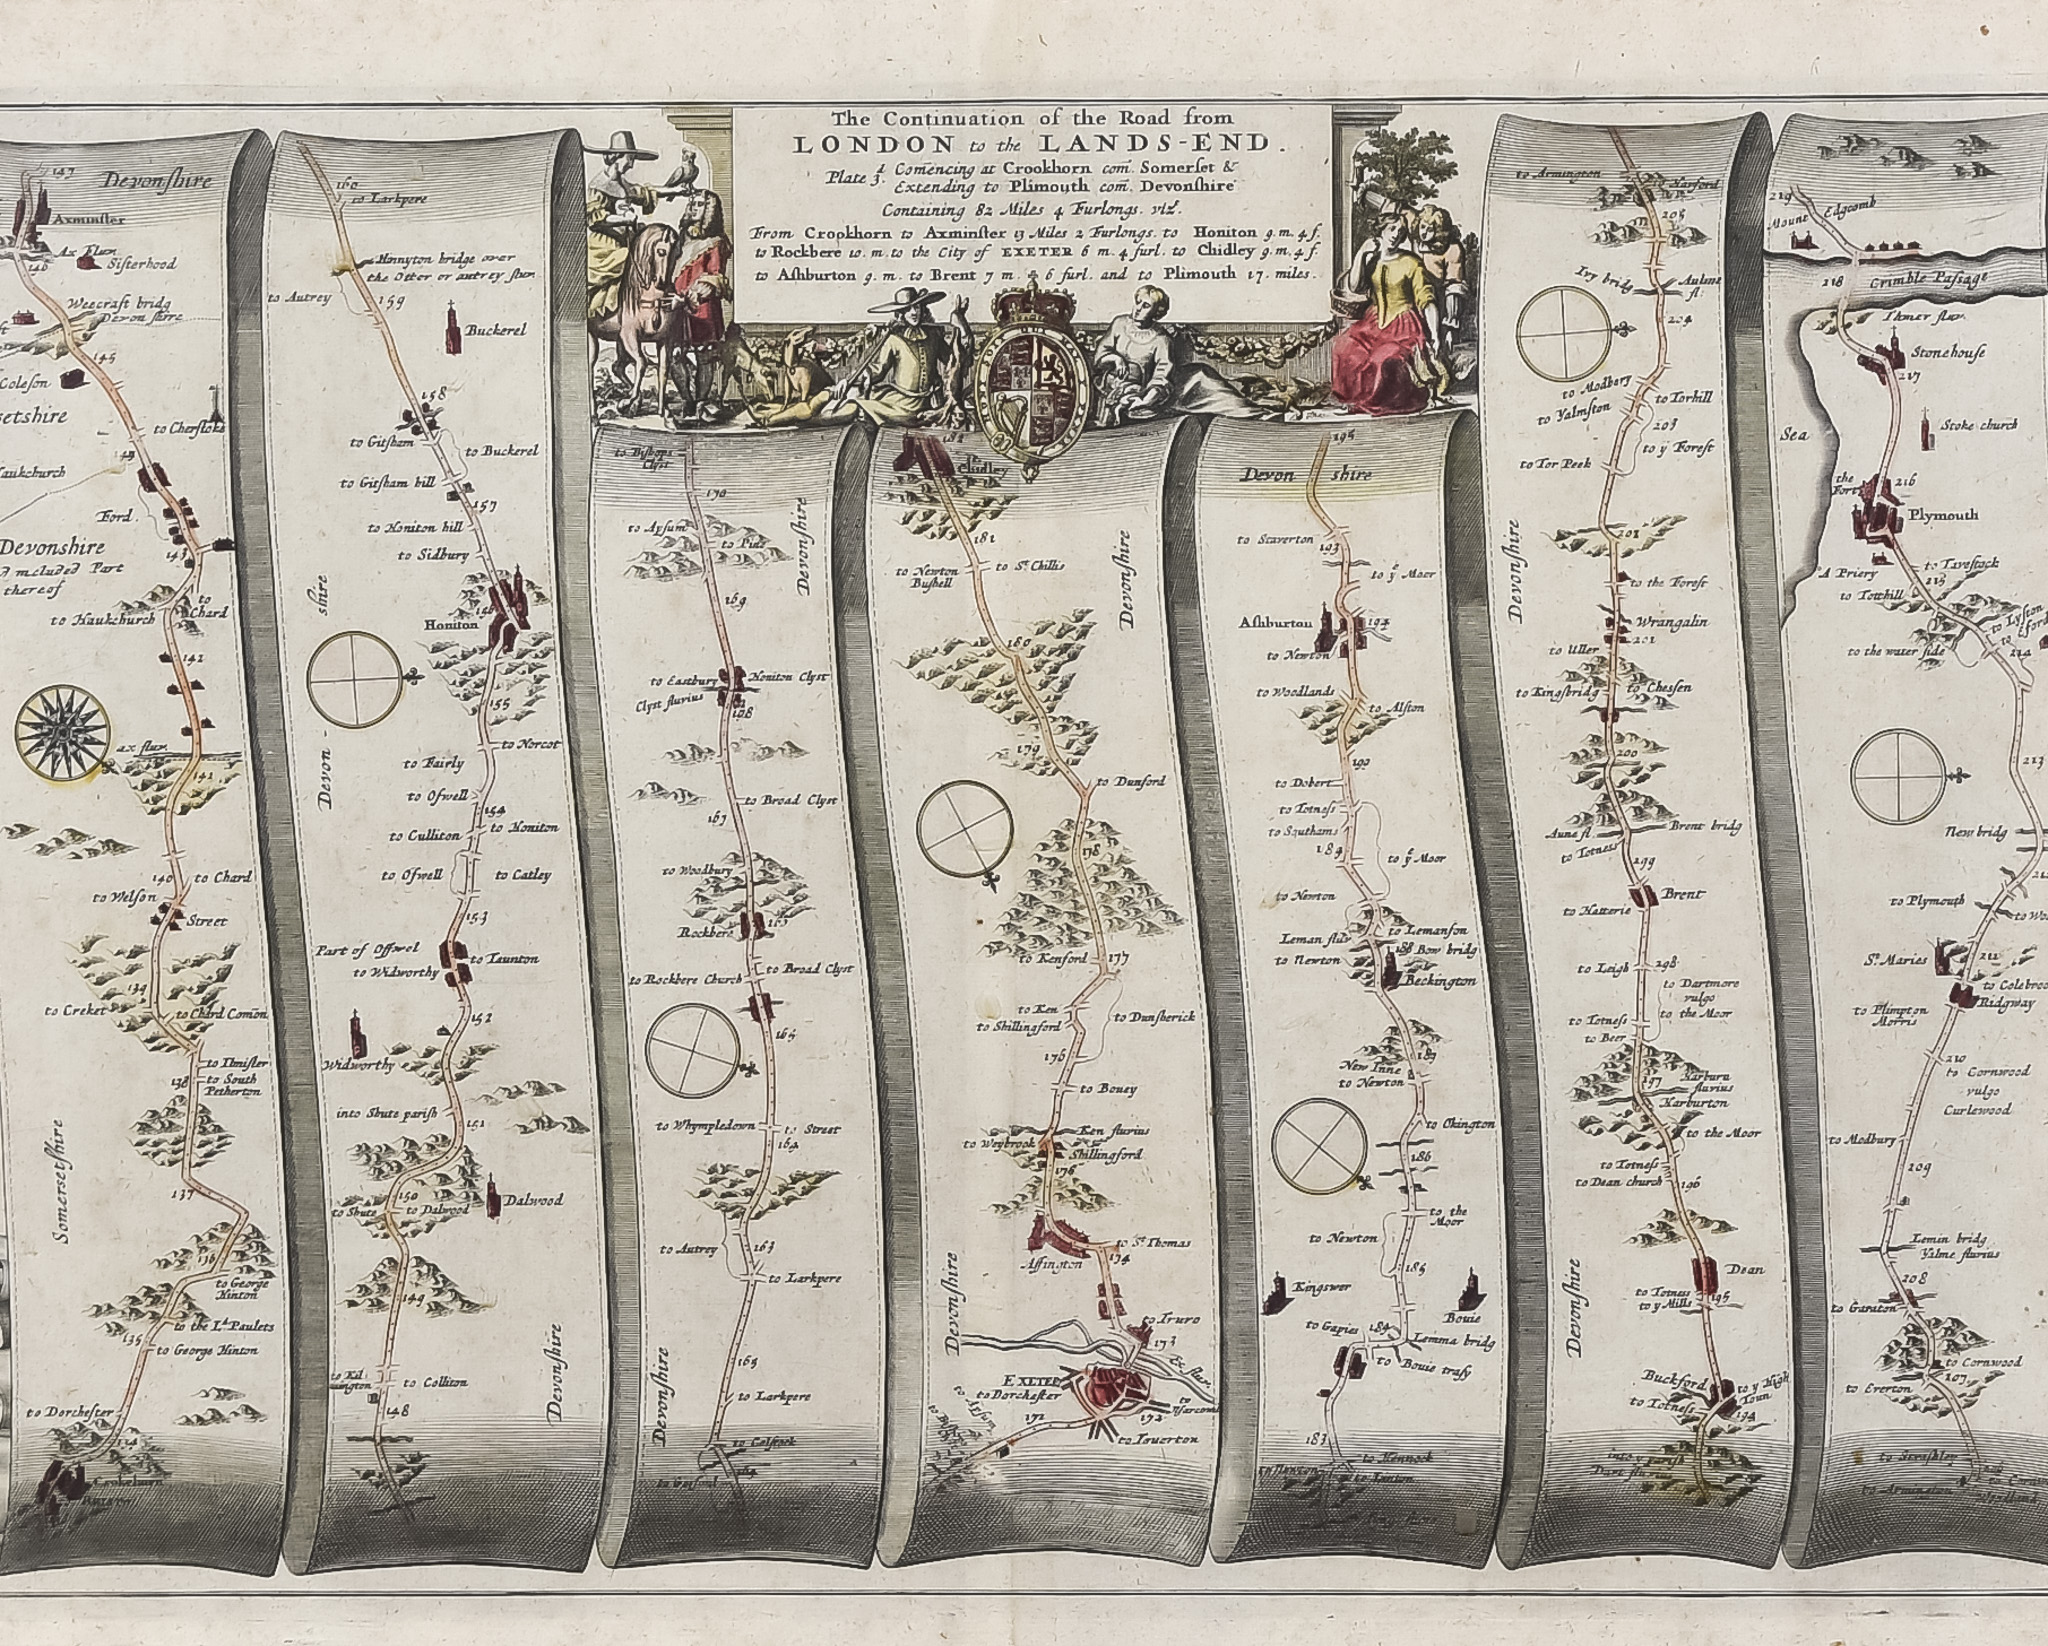 The Continuation of the Road from
LONDON to the LANDS-END.
Plate 3d. Comencing at Crookhorn com. Somerset &
Extending to Plimouth com. Devonshire
Containing 82 Miles 4 Furlongs. vizt.
From Crookhorn to Axminster 13 Miles 2 Furlongs. to Honiton 9. m. 4 f.
to Rockbere 10. m. to the City of EXETER 6 m. 4 furl. to Chidley 9. m. 4 f.
to Ashburton 9. m. to Brent 7 m. 6 furl. and to Plimouth 17. miles.
147
Devonshire
Axminster
Ax Flum
146
Sisterhood
Weecraft bridg
Devonshire
145
Coleson
setshire
to Cherstoke
Haukchurch
Ford
143
Devonshire
included Part
thereof
to
Chard
to Haukchurch
142
ax fluv.
141
140
to Chard
to Welson
Street
139
to Creket
to Chard Comon
to Ilmister
138
to South
Petherton
Somersetshire
137
136
to George
Hinton
to the Ld Paulets
135
to George Hinton
to Dorchester
134
Crokehorn
160
to Larkpere
Hinnyton bridge over
the Otter or autrey fluv.
to Autrey
159
Buckerel
158
to Gitsham
to Buckerel
to Gitsham hill
157
to Honiton hill
to Sidbury
shire
156
Honiton
155
Devon -
to Norcot
to Fairly
to Ofwell
154
to Culliton
to Honiton
to Ofwell
to Catley
153
Part of Offwel
to Widworthy
to Taunton
152
Widworthy
into Shute parish
151
150
Dalwood
to Shute
to Dalwood
149
Devonshire
to Kil
mington
to Colliton
148
to Bishops
Clyst
170
Devonshire
to Apsum
to Pin
169
to Eastbury
Honiton Clyst
Clyst fluvius
168
to Broad Clyst
167
to Woodbury
Rockbere
to Rockbere Church
to Broad Clyst
165
to Whympledown
to Street
164
to Autrey
163
to Larkpere
Devonshire
to Larkpere
182
Chidley
181
to Newton
Bushell
to St Chillis
Devonshire
180
179
to Dunford
178
to Kenford
177
to Ken
to Shillingford
to Dunsherick
176
to Bouey
Ken fluvius
to Weybrook
Shillingford
Affington
to St Thomas
174
Devonshire
to Truro
173
Ex fluv.
EXETER
to Dorchester
172
172
to Apsum
to Tiverton
195
Devon shire
to Staverton
193
to ye Moer
Ashburton
194
to Newton
to Woodlands
to Alston
190
to Dobert
to Totness
to Southams
189
to ye Moor
to Newton
Leman fluv
to Lemanson
188 Bow bridg
to Newton
Beckington
187
New Inne
to Newton
to Okington
186
to the
Moor
to Newton
185
Kingswer
Bouie
to Gapies
184
Lemma bridg
to Bouie trasy
183
to Hennock
to Armington
to Harford
205
Ivy bridg
Aulme
fl:
204
to Modbury
to Yalmston
to Torhill
203
to y Forest
to Tor Peek
Devonshire
to the Forest
Wrangalin
201
to Uller
to Kingsbridg
to Chessen
200
Aune fl.
Brent bridg
to Totness
199
Brent
to Hatterie
to Leigh
298
to Dartmore
vulgo
to the Moor
to Totness
to Beer
197
Harburn
fluvius
Harburton
to the Moor
to Totness
to Dean church
196
Devonshire
Dean
to Totness
to y Mills
195
Buckford
to y High
Toun
to Totness
194
219
Mount Edgcomb
218
Crimble Passage
Stonehouse
217
Sea
Stoke church
the
Fort
216
Plymouth
A Priery
to Tavestock
215
to Totthill
to Lyston
to the water side
214
213
New bridg
to Plymouth
St Maries
211
to Plimpton
Morris
Ridgway
210
to Cornwood
vulgo
Curlewood
to Modbury
209
Lemin bridg
Yalme fluvius
208
to Garaton
to Cornwood
to Everton
207
to Strashley
to Armington